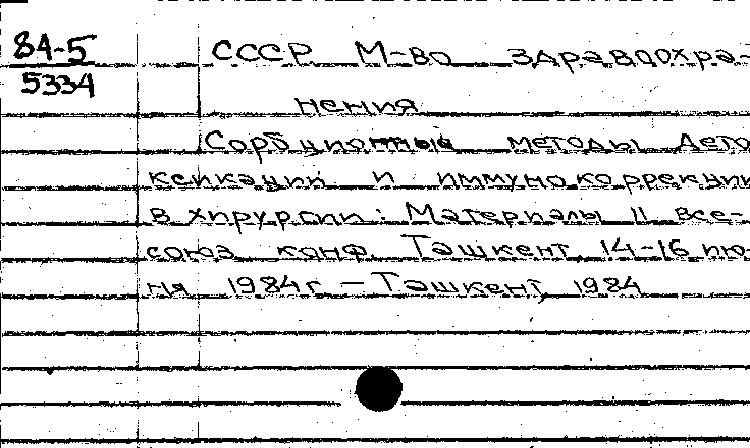 84-5
5334
СССР М-во здравоохра-
нения
Сорбционные методы дето
ксикации и иммунокоррекции
в хирургии: Материалы II все-
союз. конф. Ташкент, 14-16 ию-
ня 1984г. – Ташкент, 1984